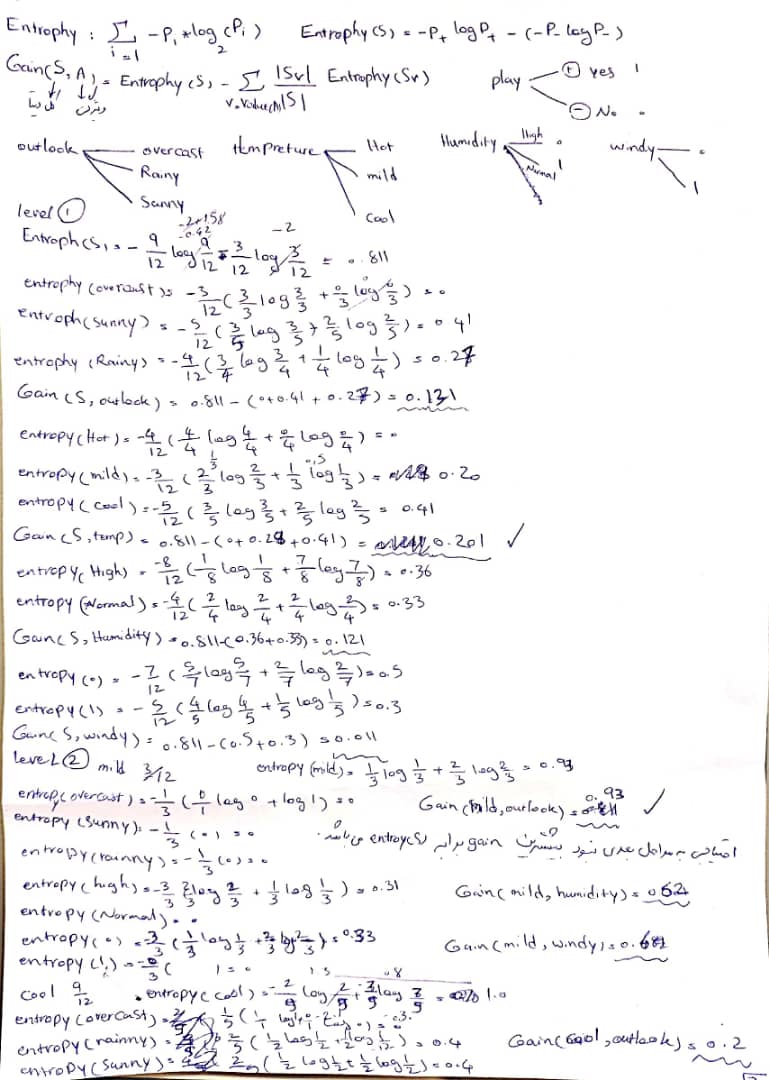 Entrophy : Σ i=1 -Pi * log2 (Pi)   Entrophy(S) = -P+ log P+ - (-P- log P-)
Gain(S, A) = Entrophy(S) - Σ v.value(A) |Sv|/|S| Entrophy(Sv)   play + yes 1
- No 0
outlook overcast Rainy Sunny   tempreture Hot mild cool   Humidity High 0 Normal 1   windy 0 1
level 1
Entroph(S) = - 9/12 log 9/12 - 3/12 log 3/12 = 0.811
entrophy (overcast) = -3/12 (3/3 log 3/3 + 0/3 log 0/3) = 0
entroph (sunny) = -5/12 (3/5 log 3/5 + 2/5 log 2/5) = 0.41
entrophy (Rainy) = -4/12 (3/4 log 3/4 + 1/4 log 1/4) = 0.27
Gain (S, outlook) = 0.811 - (0+0.41 + 0.27) = 0.131
entropy (Hot) = -4/12 (4/4 log 4/4 + 0/4 log 0/4) = 0
entropy (mild) = -3/12 (2/3 log 2/3 + 1/3 log 1/3) = 0.20
entropy (cool) = -5/12 (3/5 log 3/5 + 2/5 log 2/5 = 0.41
Gain (S, temp) = 0.811 - (0+0.28+0.41) = 0.201 ✓
entropy (High) = -8/12 (1/8 log 1/8 + 7/8 log 7/8) = 0.36
entropy (Normal) = -4/12 (2/4 log 2/4 + 2/4 log 2/4) = 0.33
Gain (S, Humidity) = 0.811-(0.36+0.33) = 0.121
entropy (0) = -7/12 (5/7 log 5/7 + 2/7 log 2/7) = 0.5
entropy (1) = -5/12 (4/5 log 4/5 + 1/5 log 1/5) = 0.3
Gain (S, windy) = 0.811 - (0.5+0.3) = 0.011
level 2 mild 3/12   entropy (mild) = 1/3 log 1/3 + 2/3 log 2/3 = 0.93
entropy (overcast) = -1/3 (0/1 log 0 + log 1) = 0   Gain (mild, outlook) = 0.93 ✓
entropy (sunny) = -1/3 (0) = 0
entropy (rainny) = -1/3 (0) = 0   به مراحل بعدی نبود بیشترین gain برابر entropy(S) می باشد.
entropy (high) = -3/3 2/3 log 2/3 + 1/3 log 1/3) = 0.31   Gain (mild, humidity) = 0.62
entropy (Normal) = 0
entropy (0) = -3/3 (1/3 log 1/3 + 2/3 log 2/3) = 0.33   Gain (mild, windy) = 0.6
entropy (1) = -0/3 (
cool 9/12   entropy (cool) = -2/9 log 2/9 + 3/9 log = 1.0
entropy (overcast) = 1/5
entropy (rainny) = 2/5 (1/2 log 1/2 + 1/2 log 1/2) = 0.4   Gain (cool, outlook) = 0.2
entropy (sunny) = (1/2 log 1/2 + 1/2 log 1/2) = 0.4